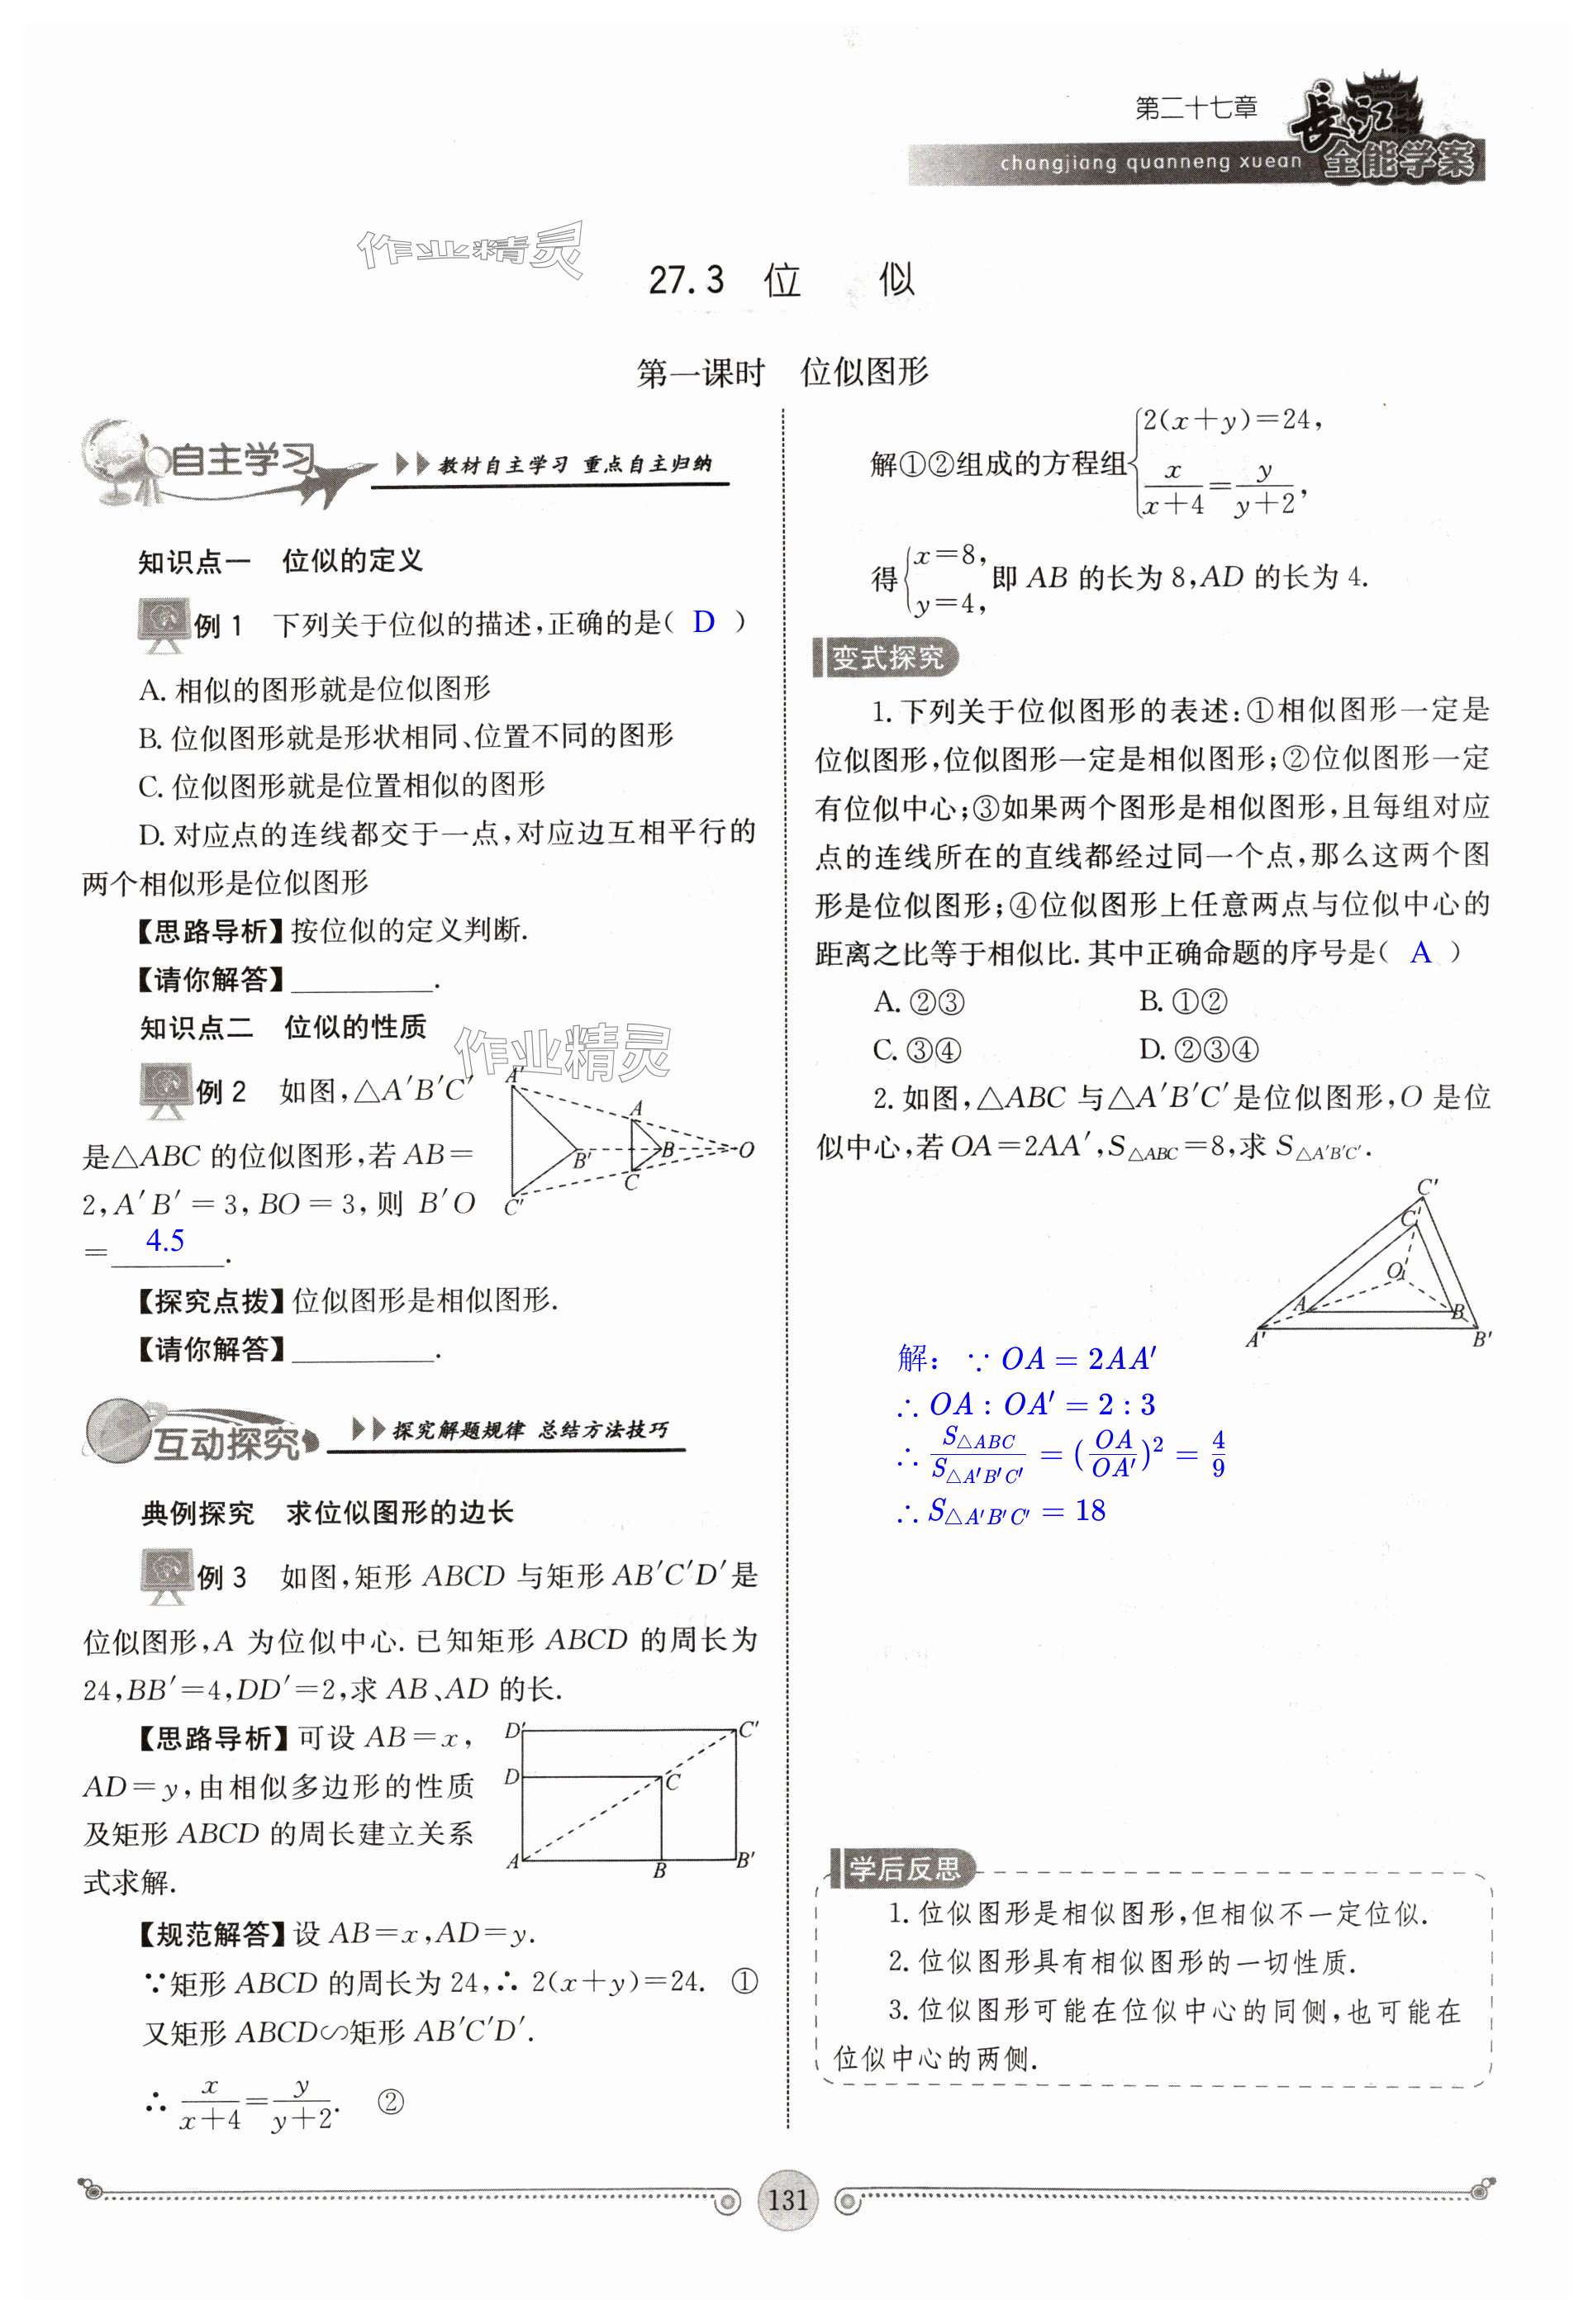 第二十七章
長江
全能学案
changjiang quanneng xuean
作业精灵
27.3 位 似
第一课时 位似图形
自主学习 教材自主学习 重点自主归纳
知识点一 位似的定义
例1 下列关于位似的描述,正确的是( D )
A. 相似的图形就是位似图形
B. 位似图形就是形状相同、位置不同的图形
C. 位似图形就是位置相似的图形
D. 对应点的连线都交于一点,对应边互相平行的
两个相似形是位似图形
【思路导析】按位似的定义判断.
【请你解答】__________.
知识点二 位似的性质
作业精灵
例2 如图,△A′B′C′
是△ABC 的位似图形,若 AB=
2,A′B′=3,BO=3,则 B′O
= 4.5 .
A′
A
B′
B
O
C
C′
【探究点拨】位似图形是相似图形.
【请你解答】__________.
互动探究 探究解题规律 总结方法技巧
典例探究 求位似图形的边长
例3 如图,矩形 ABCD 与矩形 AB′C′D′是
位似图形,A 为位似中心. 已知矩形 ABCD 的周长为
24,BB′=4,DD′=2,求 AB、AD 的长.
【思路导析】可设 AB=x,
AD=y,由相似多边形的性质
及矩形 ABCD 的周长建立关系
式求解.
D′
C′
D
C
A
B
B′
【规范解答】设 AB=x,AD=y.
∵矩形 ABCD 的周长为 24,∴ 2(x+y)=24. ①
又矩形 ABCD∽矩形 AB′C′D′.
∴ x/(x+4)=y/(y+2). ②
解①②组成的方程组{2(x+y)=24,
x/(x+4)=y/(y+2),
得{x=8,
y=4,即 AB 的长为 8,AD 的长为 4.
变式探究
1. 下列关于位似图形的表述:①相似图形一定是
位似图形,位似图形一定是相似图形;②位似图形一定
有位似中心;③如果两个图形是相似图形,且每组对应
点的连线所在的直线都经过同一个点,那么这两个图
形是位似图形;④位似图形上任意两点与位似中心的
距离之比等于相似比. 其中正确命题的序号是( A )
A. ②③ B. ①②
C. ③④ D. ②③④
2. 如图,△ABC 与△A′B′C′是位似图形,O 是位
似中心,若 OA=2AA′,S△ABC=8,求 S△A′B′C′.
C′
C
O
A
B
A′
B′
解: ∵ OA = 2AA′
∴ OA : OA′ = 2 : 3
∴ S△ABC/S△A′B′C′ = (OA/OA′)² = 4/9
∴ S△A′B′C′ = 18
学后反思
1. 位似图形是相似图形,但相似不一定位似.
2. 位似图形具有相似图形的一切性质.
3. 位似图形可能在位似中心的同侧,也可能在
位似中心的两侧.
131